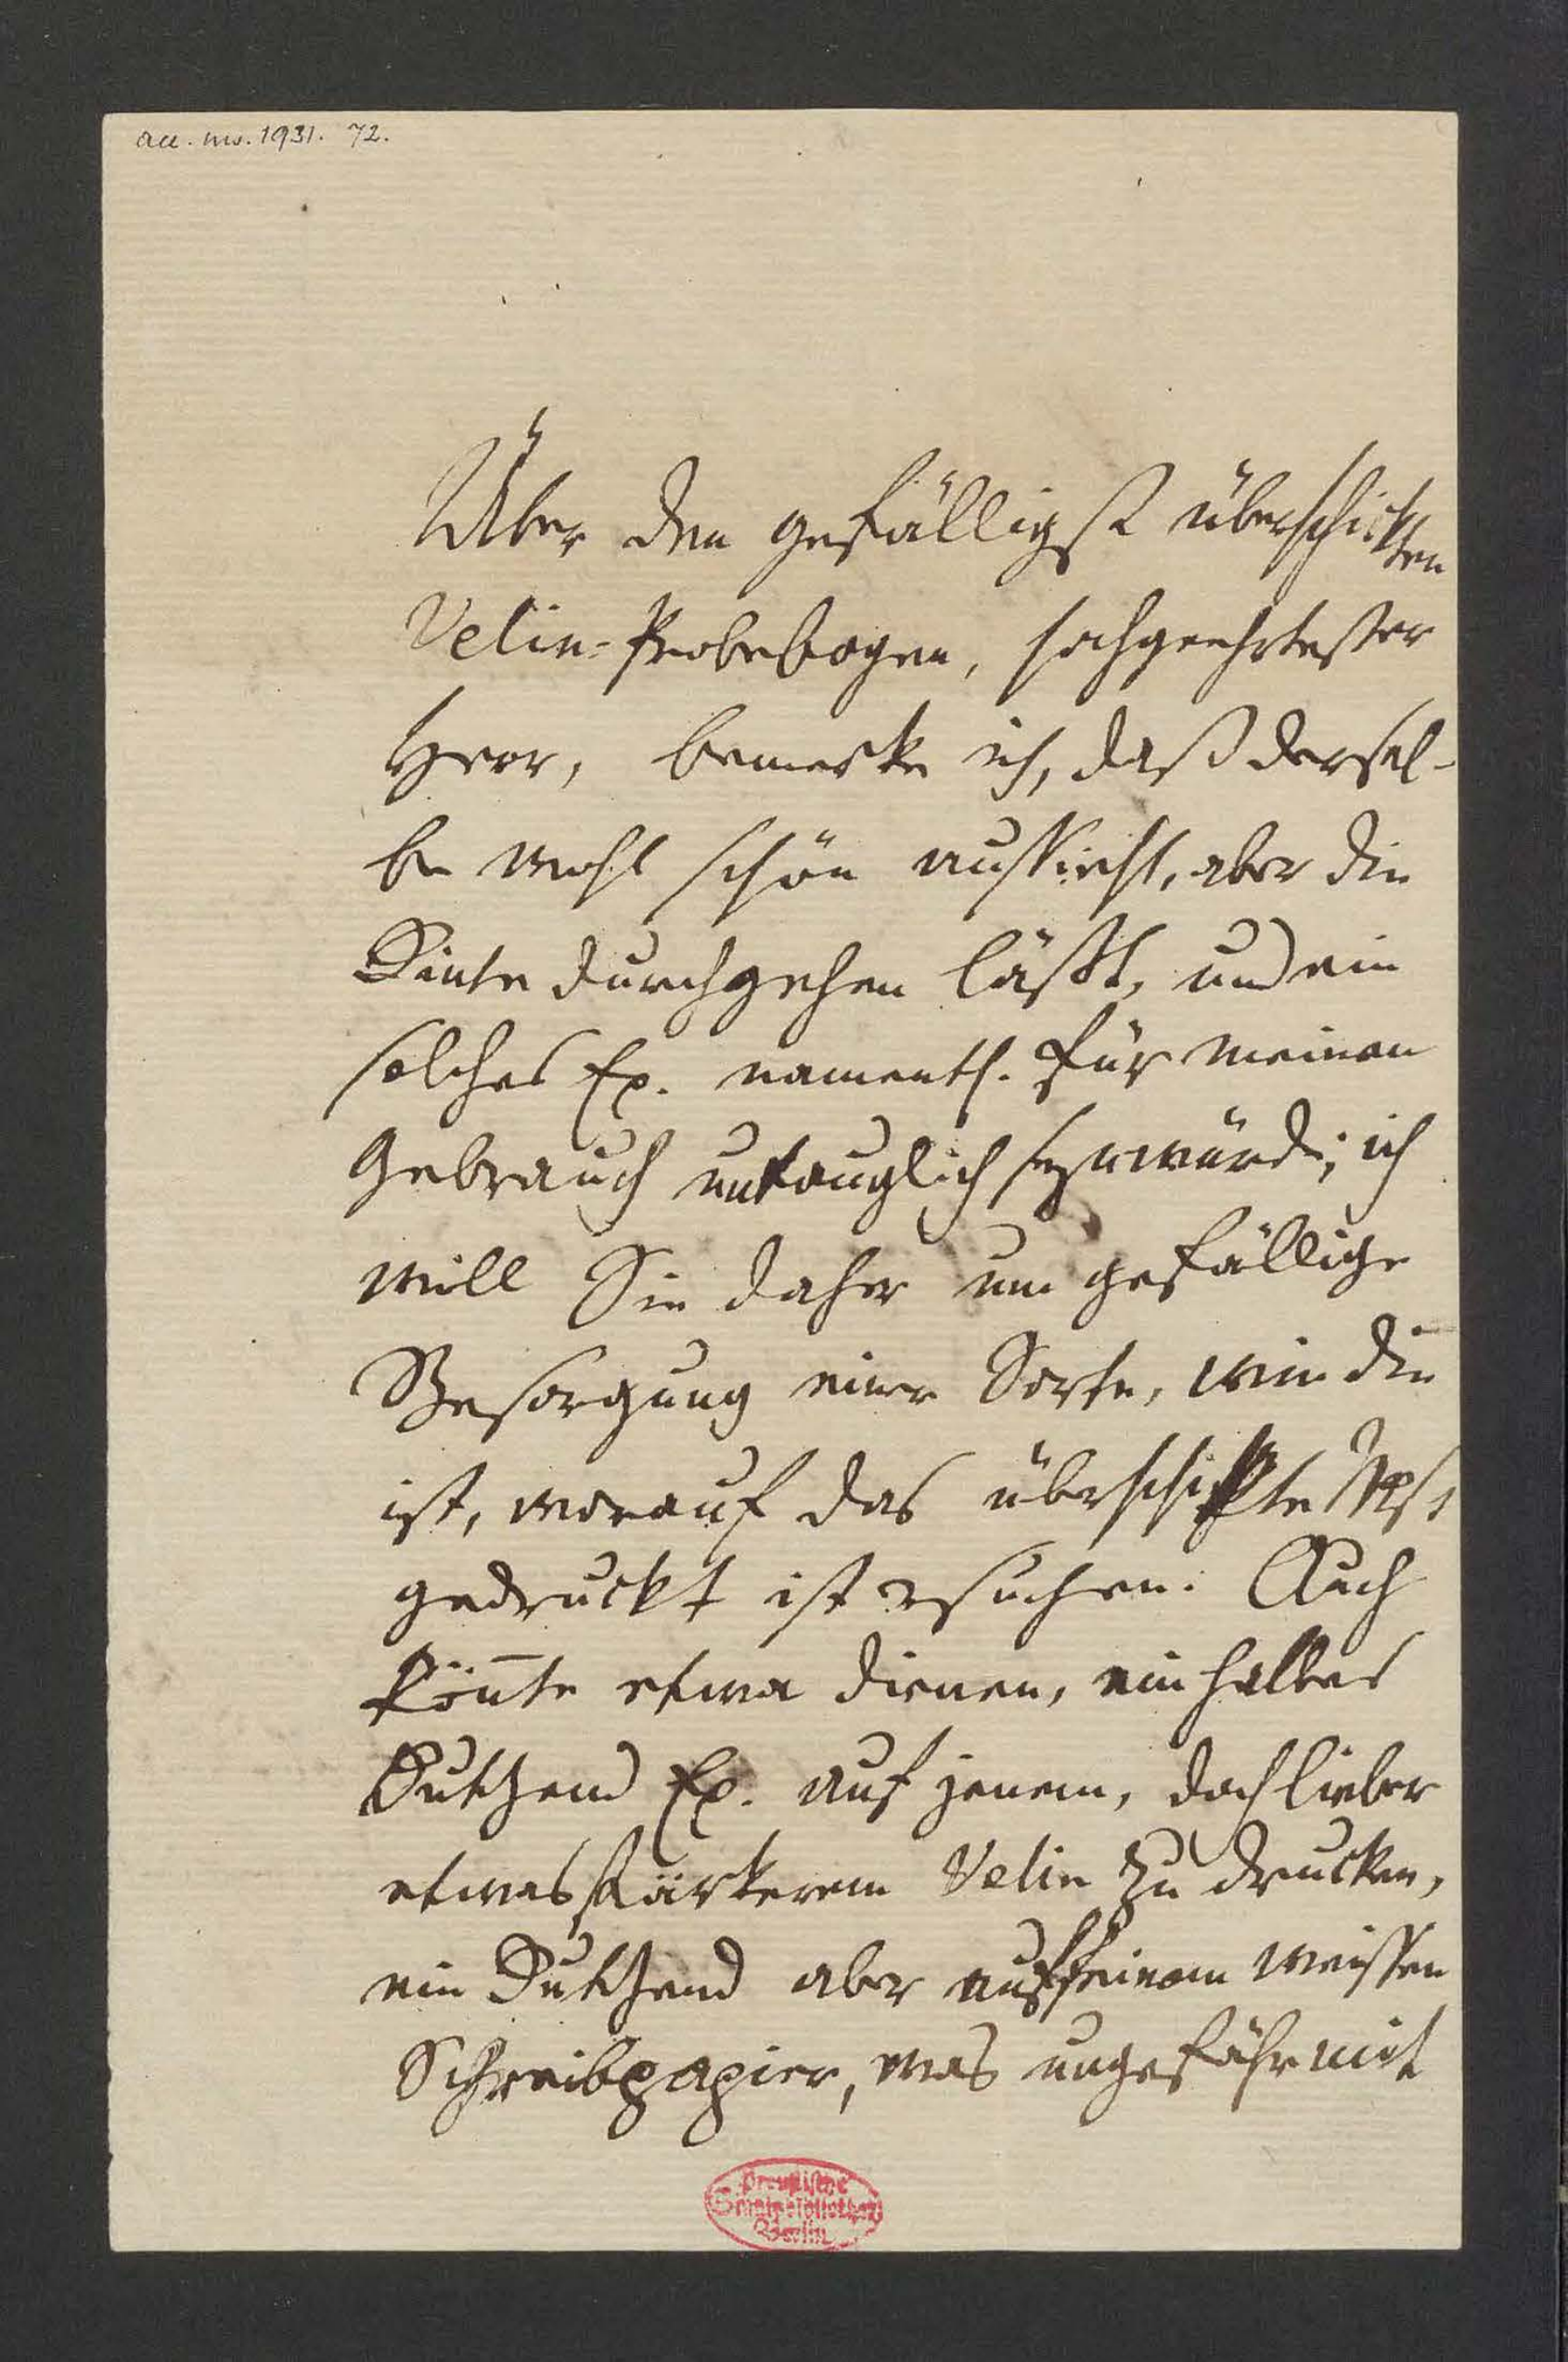 acc. ms. 1931. 72.
Über den gefälligst überschickten
Velin-Probebogen, hochgeehrtester
Herr, bemerke ich, daß dersel-
be wohl schön aussieht, aber die
Dinte durchgehen läßt, und ein
solches Ex. namentl. für meinen
Gebrauch untauglich seyn würde; ich
will Sie daher um gefällige
Besorgung einer Sorte, wie die
ist, worauf das überschickte Mst
gedruckt ist ersuchen. Auch
kön̄te etwa dienen, ein halbes
Dutzend Ex. auf jenem, doch lieber
etwas stärkerem Velin zu drucken,
ein Dutzend aber auf feinem weissen
Schreibpapier, was ungefähr mit
Preußische
Staatsbibliothek
Berlin